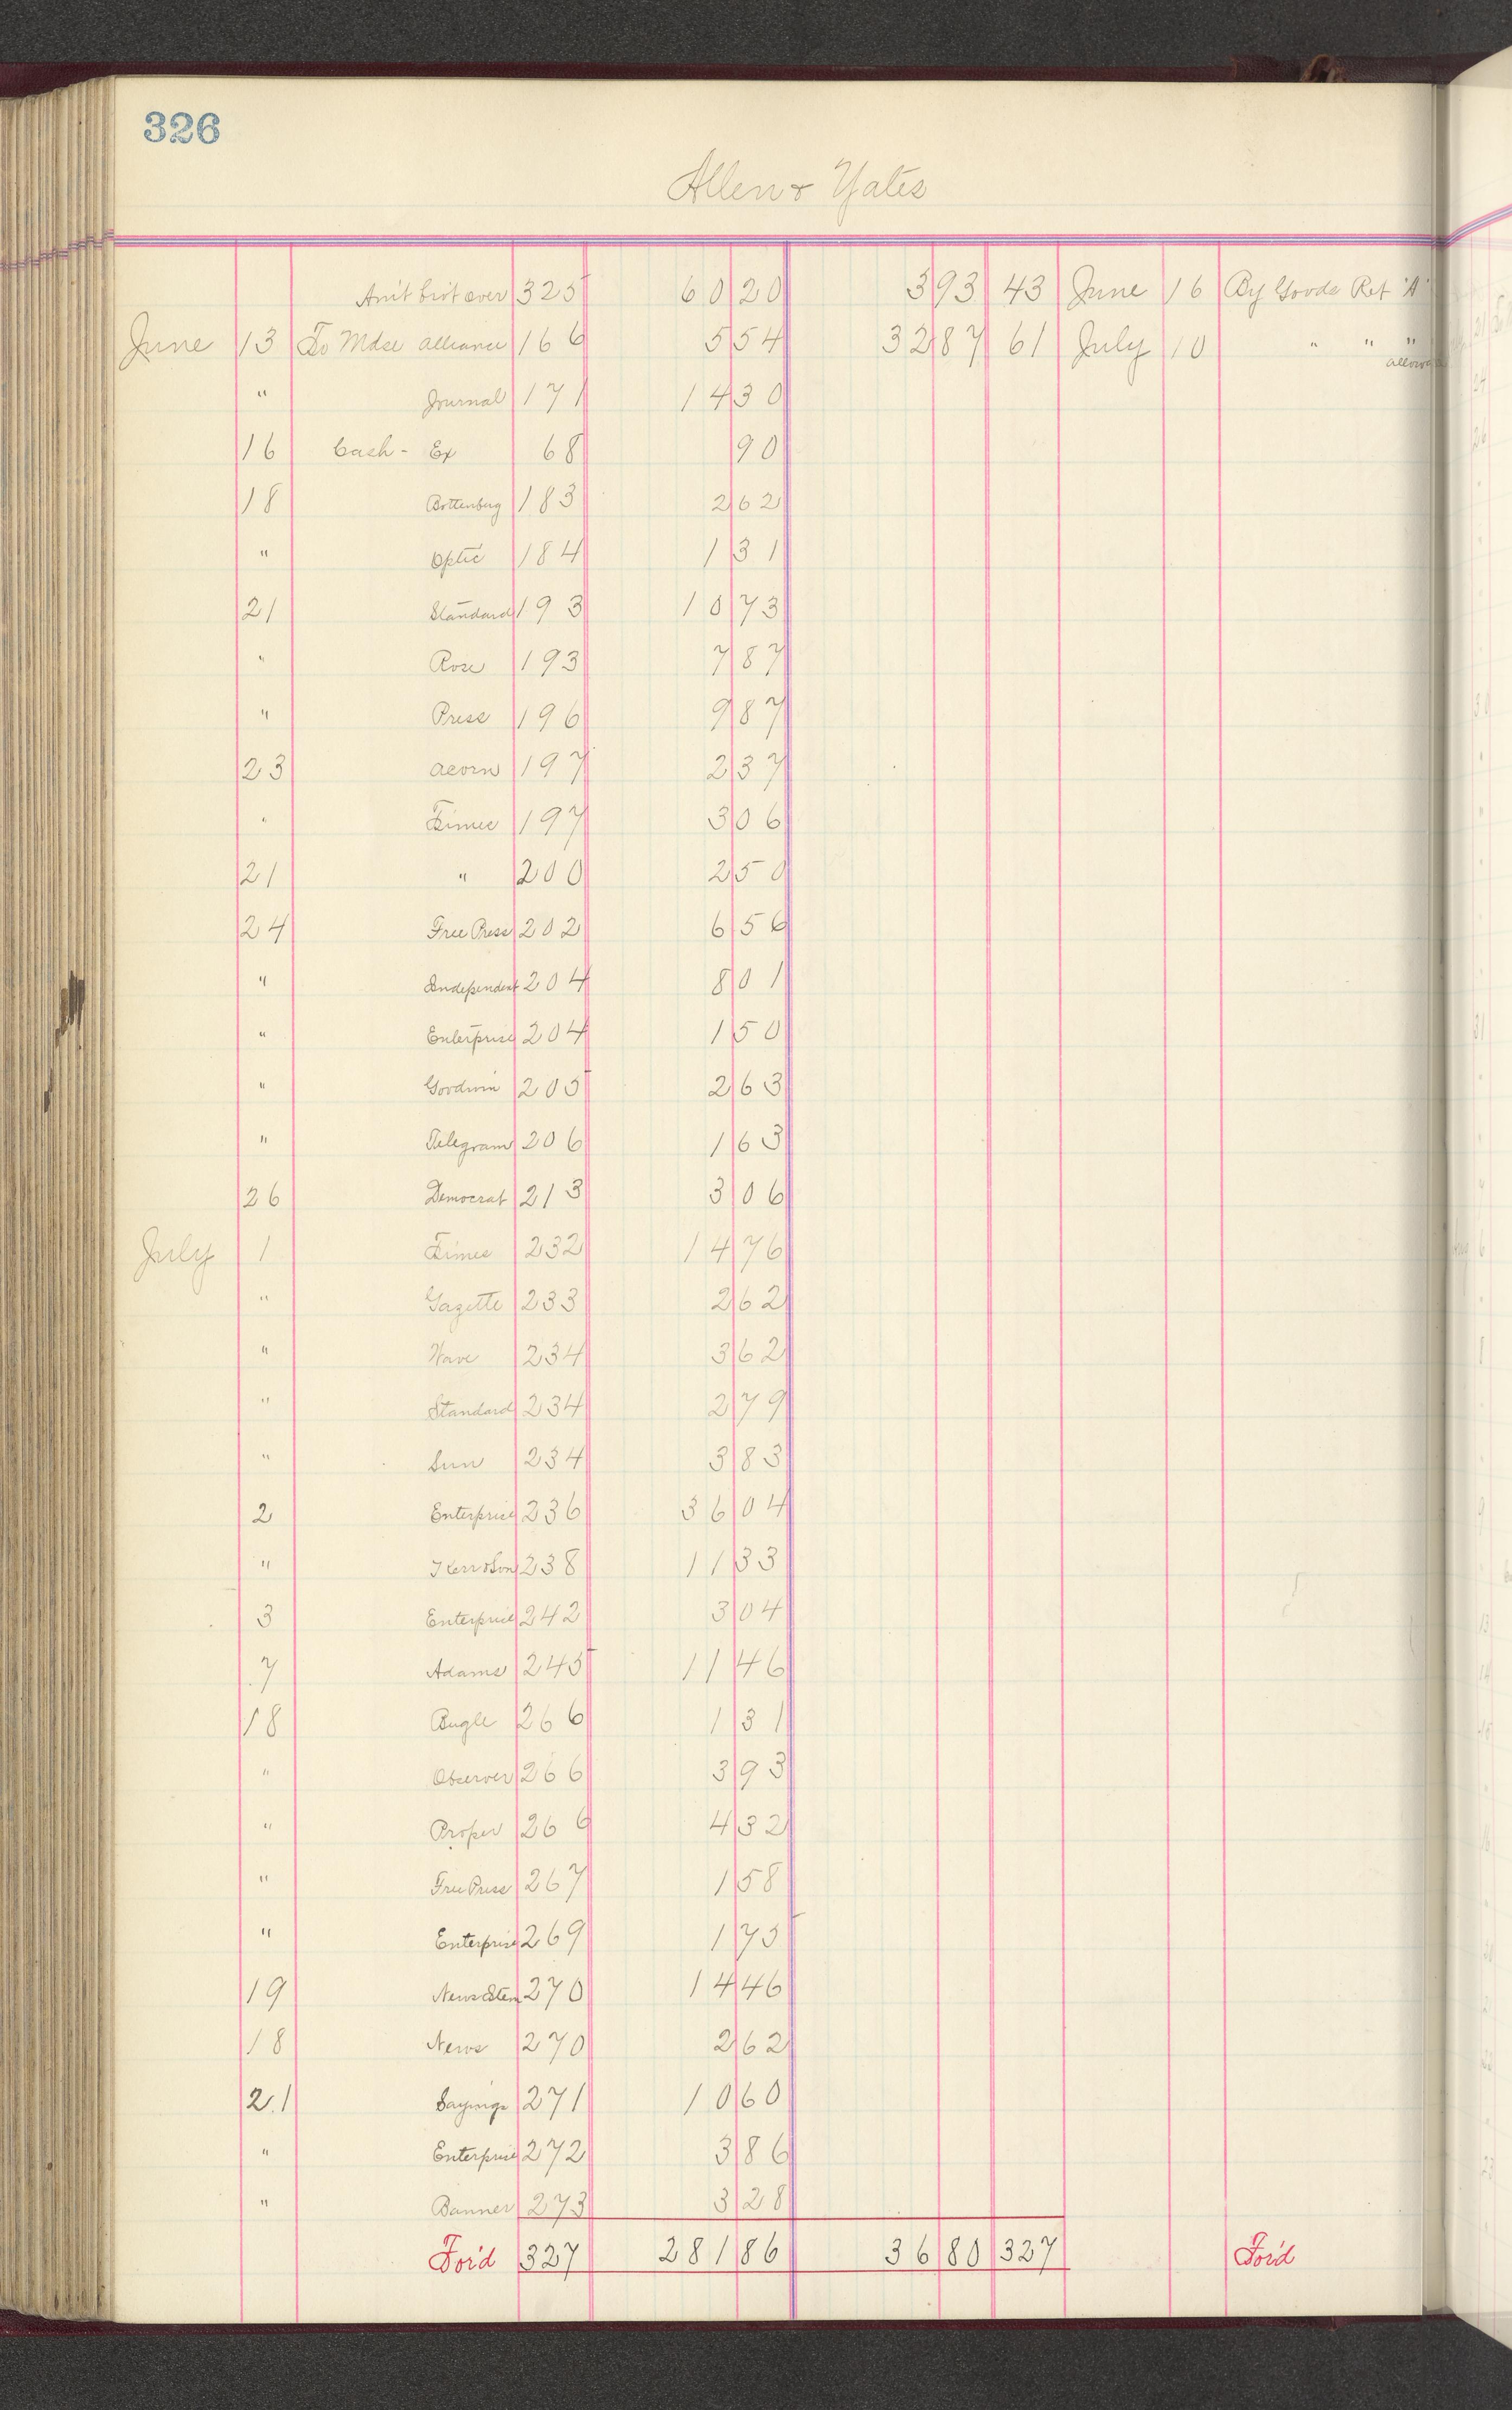 326
Allen & Yates
Am't brot over 325 60 20 3 93 43 June 16 By Goods Ret "A"
June 13 To Mdse Alliance 166 5 54 32 87 61 July 10 " " "
allow
" Journal 171 14 30
16 Cash - Ex 68 90
18 Bottenberg 183 2 62
" Optic 184 1 31
21 Standard 193 10 73
" Rose 193 7 87
" Press 196 9 87
23 Acorn 197 2 37
" Times 197 3 06
21 " 200 2 50
24 Free Press 202 6 56
" Independent 204 8 01
" Enterprise 204 1 50
" Goodwin 205 2 63
" Telegram 206 1 63
26 Democrat 213 3 06
July 1 Times 232 14 76
" Gazette 233 2 62
" Wave 234 3 62
" Standard 234 2 79
" Sun 234 3 83
2 Enterprise 236 36 04
" Kerr & Son 238 11 33
3 Enterprise 242 3 04
7 Adams 245 11 46
18 Bugle 266 1 31
" Observer 266 3 93
" Proper 266 4 32
" Free Press 267 1 58
" Enterprise 269 1 75
19 News 270 14 46
18 News 270 2 62
21 Sayings 271 10 60
" Enterprise 272 3 86
" Banner 273 3 28
For'd 327 281 86 36 80 327 For'd